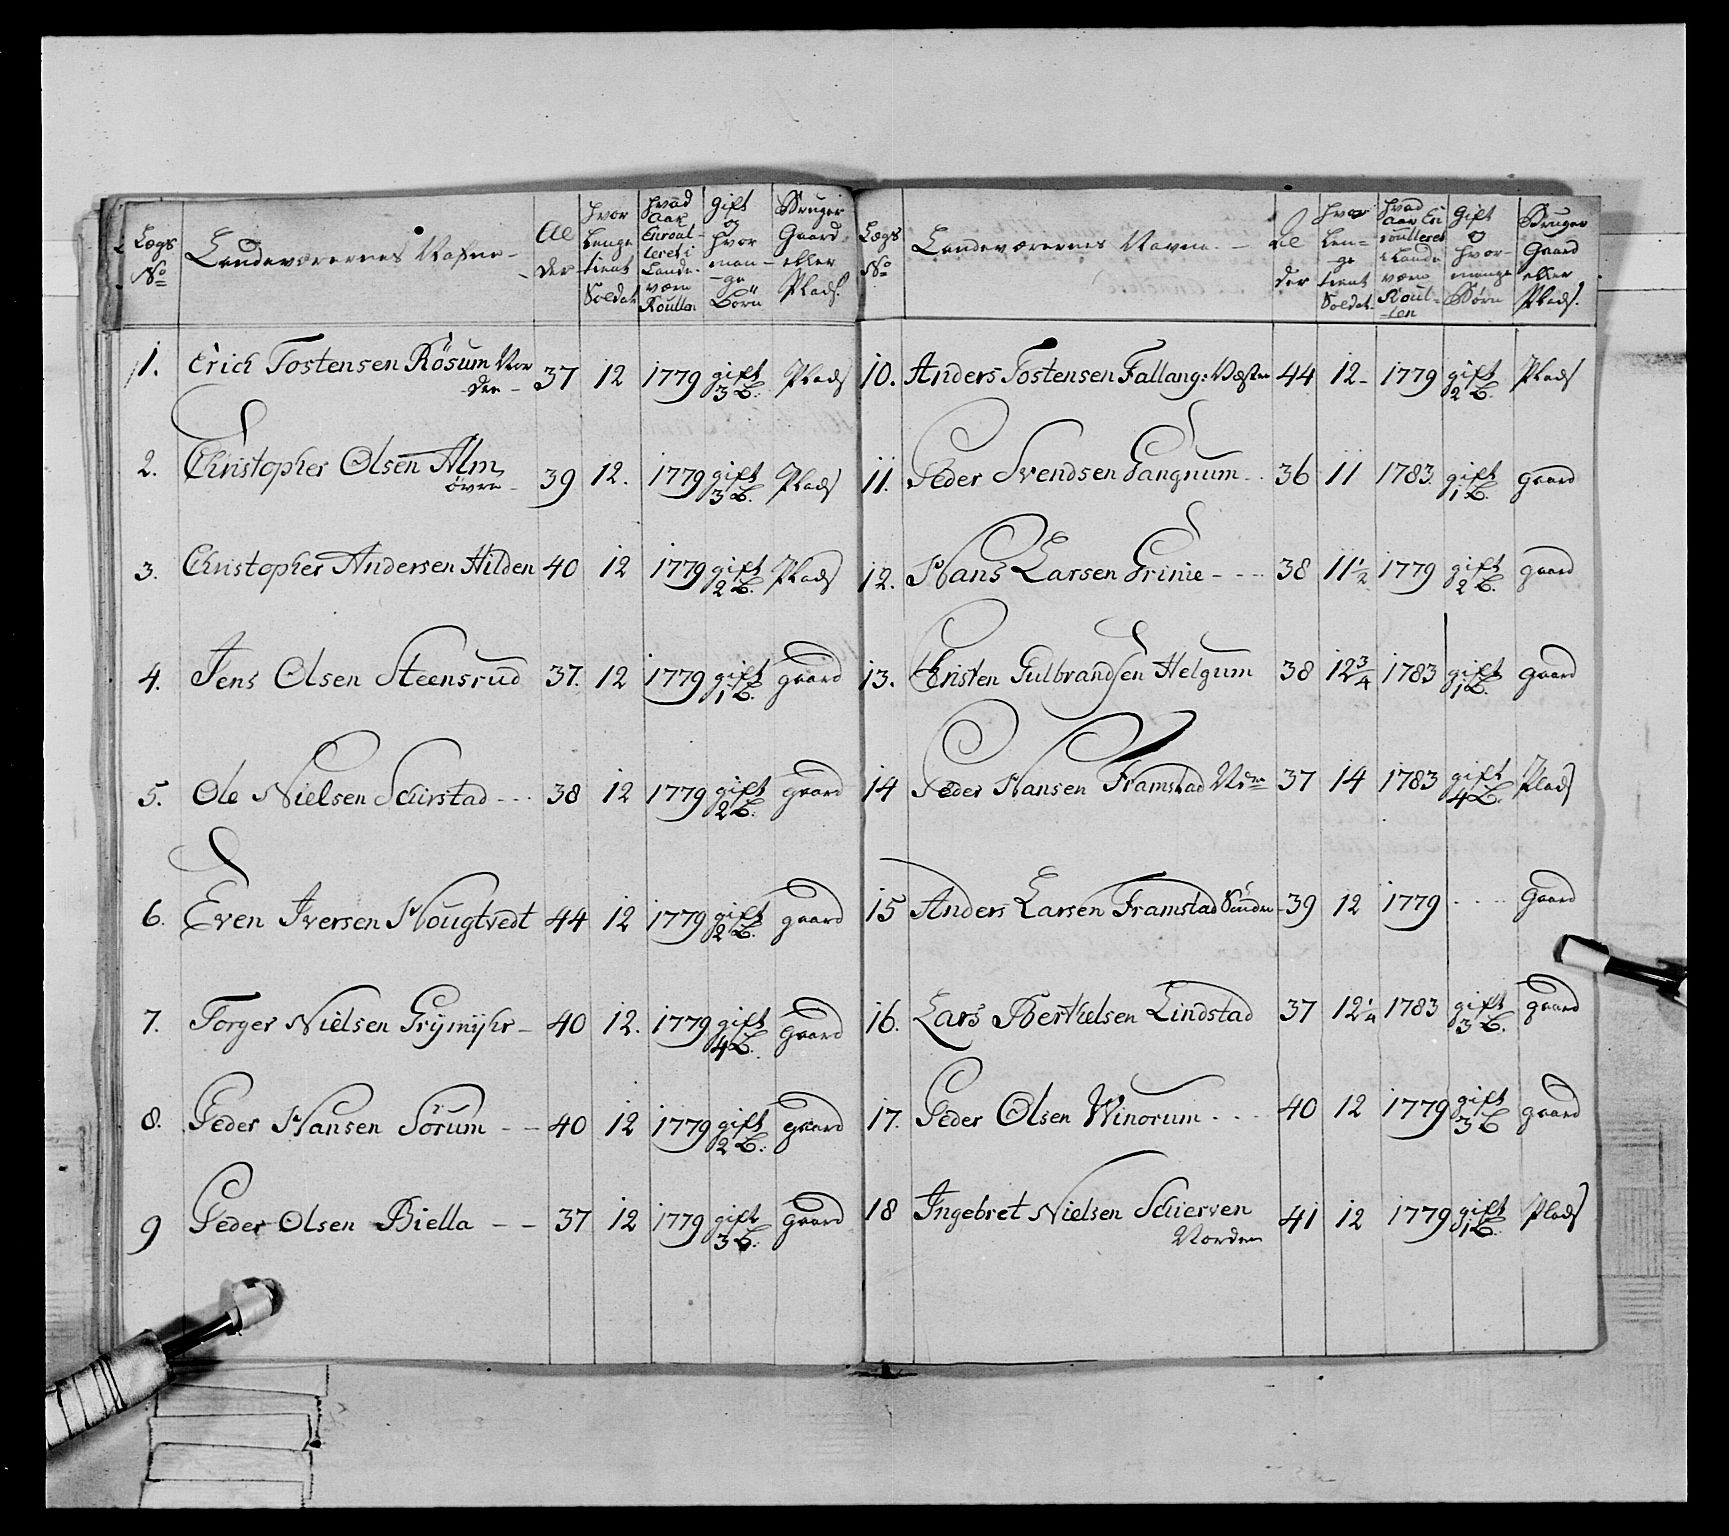 Lægs No
Landeværernes Nafne
Al der
hvor lenge tient Soldat
hvad Aar Enroulleret i Landeværn Roullen
gift og hvor mange Börn
Bruger Gaard eller Plads.
1. Erich Tostensen Rösum Nordre 37 12 1779 gift 3 B. Plads
2. Christopher Olsen Alm övre 39 12. 1779 gift 3 B. Plads
3. Christopher Andersen Hilden 40 12 1779 gift 2 B. Plads
4. Jens Olsen Steensrud 37. 12 1779 gift 1 B. gaard
5. Ole Nielsen Schirstad 38 12 1779 gift 2 B. gaard
6. Even Iversen Hougtvedt 44 12 1779 gift 2 B. gaard
7. Torger Nielsen Grÿmÿhr 40 12. 1779 gift 4 B. gaard
8. Peder Hansen Sörum 40 12 1779 gift 2 B. gaard
9 Peder Olsen Biella 37 12 1779 gift 3 B. gaard
Lægs No
Landeværernes Navne
Al der
hvor lenge tient Soldat
hvad Aar Enroulleret i Landeværn Roullen
gift og hvor mange Börn
Bruger Gaard eller Plads.
10. Anders Tostensen Fallang: Væstre 44 12 1779 gift 2 B. Plads
11. Peder Svendsen Gangnum 36 11 1783. gift 1 B. gaard
12. Hans Larsen Grinie 38 11 1/2 1779 gift 2 B. gaard
13. Christen Gulbrandsen Helgum 38 12 3/4 1783 gift 1 B. gaard
14 Peder Hansen Framstad Nre 37 14 1783 gift 4 B. Plads
15 Anders Larsen Framstad Söndre 39 12 1779 Gaard
16. Lars Berthelsen Lindstad 37 12 1/4 1783 gift 3 B. gaard
17. Peder Olsen Winorum 40 12 1779 gift 3 B gaard
18 Ingebret Nielsen Schierven Nordre 41 12 1779 gift 1 B. Plads